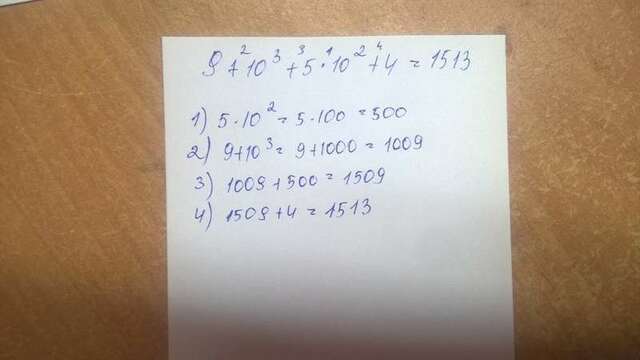 9 +² 10³ +³ 5 ·¹ 10² +⁴ 4 = 1513
1) 5·10² = 5·100 = 500
2) 9+10³ = 9+1000 = 1009
3) 1009+500 = 1509
4) 1509+4 = 1513